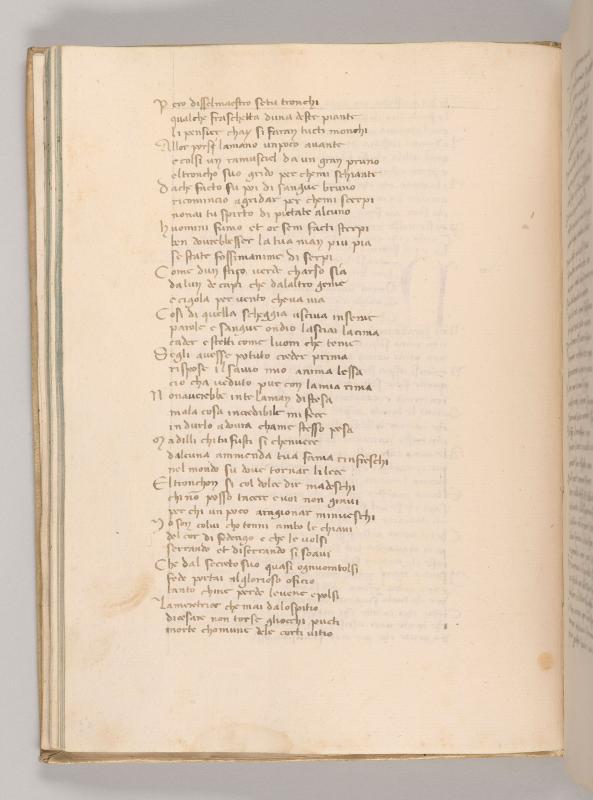 Pero disselmaestro setu tronchi
qualche fraschetta duna deste piante
li pensier chay si faran tucti monchi
Allor porsi lamano unpoco avante
e colsi un ramusciel da un gran pruno
eltroncho suo grido per chemi schiante
Dache facto fu poi di sangue bruno
ricomincio agridar per chemi scerpi
nonai tu spirto di pietate alcuno
huomini fumo et or sem facti sterpi
ben dovrebbesser la tua man piu pia
se state fossimanime di serpi
Come dun stizo verde charso sia
dalun de capi che dalaltro geme
e cigola per vento cheva via
Cosi di quella scheggia usciva inseme
parole e sangue ondio lasciai lacima
cader e stetti come luom che teme
Segli avesse potuto creder prima
rispose il savio mio anima lessa
cio cha veduto pur con lamia rima
Nonaverebbe inte laman distesa
mala cosa incredibile mi fece
indurlo adovra chame stesso pesa
Ma dilli chi tu fusti si chenvece
dalcuna ammenda tua fama rinfreschi
nel mondo su dove tornar li lece
Eltronchon si col dolce dir madeschi
chi no posso tacere e voi non gravi
per chi un poco aragionar minveschi
Yo son colui cho tenni ambo le chiavi
del cor di federigo e che le volsi
serrando et diserrando si soavi
Che dal secreto suo quasi ognuomtolsi
fede portai alglorioso oficio
tanto chine perde levene epolsi
Lameretrice che mai dalospitio
dicesare non torse gliocchi pucti
morte chomune dele corti vitio